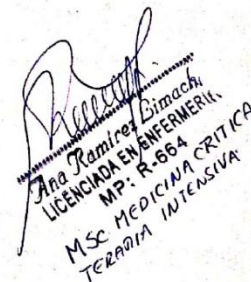 Ana Ramirez Limach
LICENCIADA EN ENFERMERIA
MP: R-664
MSC MEDICINA CRITICA
TERAPIA INTENSIVA.